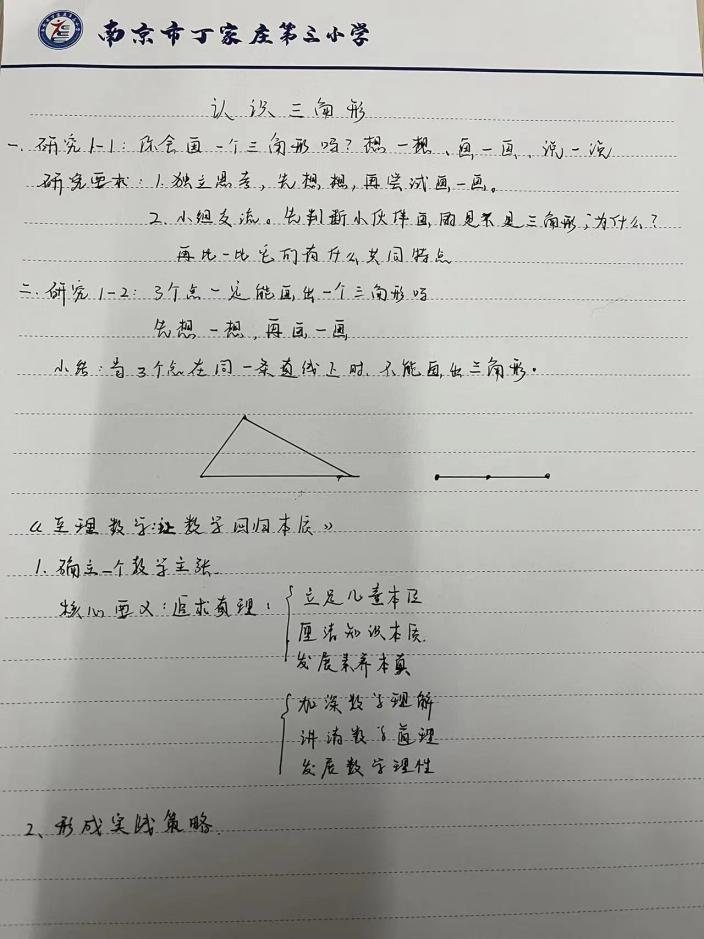 南京市丁家庄第三小学
认识三角形
一、研究1-1：你会画一个三角形吗？想一想、画一画、说一说
研究要求：1.独立思考，先想想，再尝试画一画。
2.小组交流。先判断小伙伴画的是不是三角形，为什么？
再比一比它们有什么共同特点
二、研究1-2：3个点一定能画出一个三角形吗
先想一想，再画一画
小结：当3个点在同一条直线上时，不能画出三角形。
《至理数学：让数学回归本质》
1.确立一个教学主张
核心要义：追求真理：
立足儿童本位
厘清知识本质
发展素养本真
加深数学理解
讲清数学道理
发展数学理性
2、形成实践策略